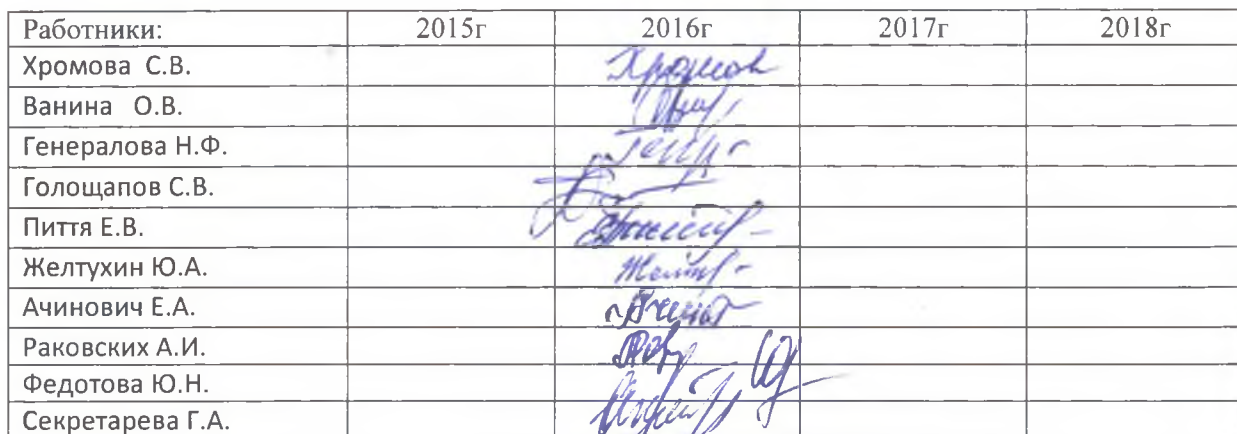 Работники: 2015г 2016г 2017г 2018г
Хромова С.В.
Ванина О.В.
Генералова Н.Ф.
Голощапов С.В.
Пиття Е.В.
Желтухин Ю.А.
Ачинович Е.А.
Раковских А.И.
Федотова Ю.Н.
Секретарева Г.А.